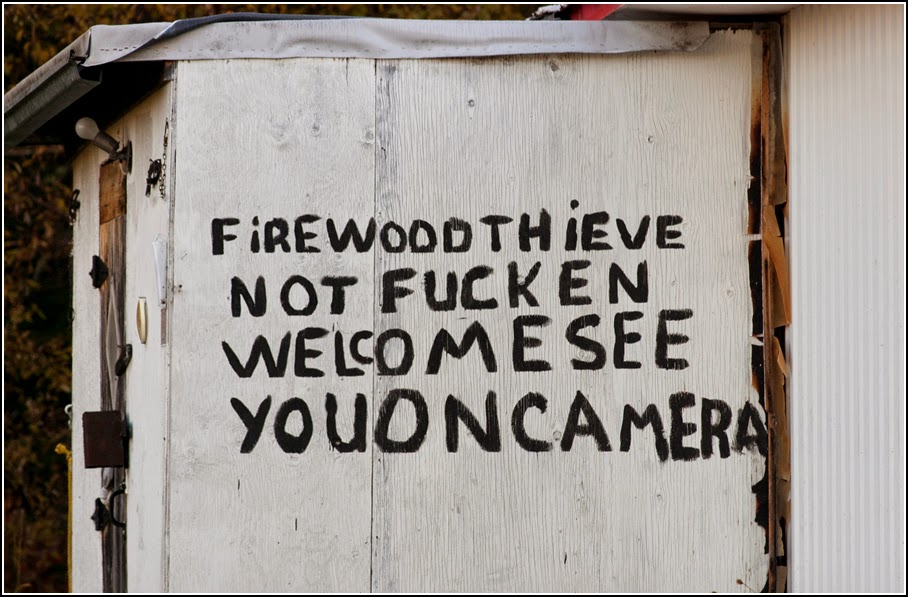 FiREWOODTHiEVE
NOT FUCKEN
WELCOMESEE
YOUONCAMERA